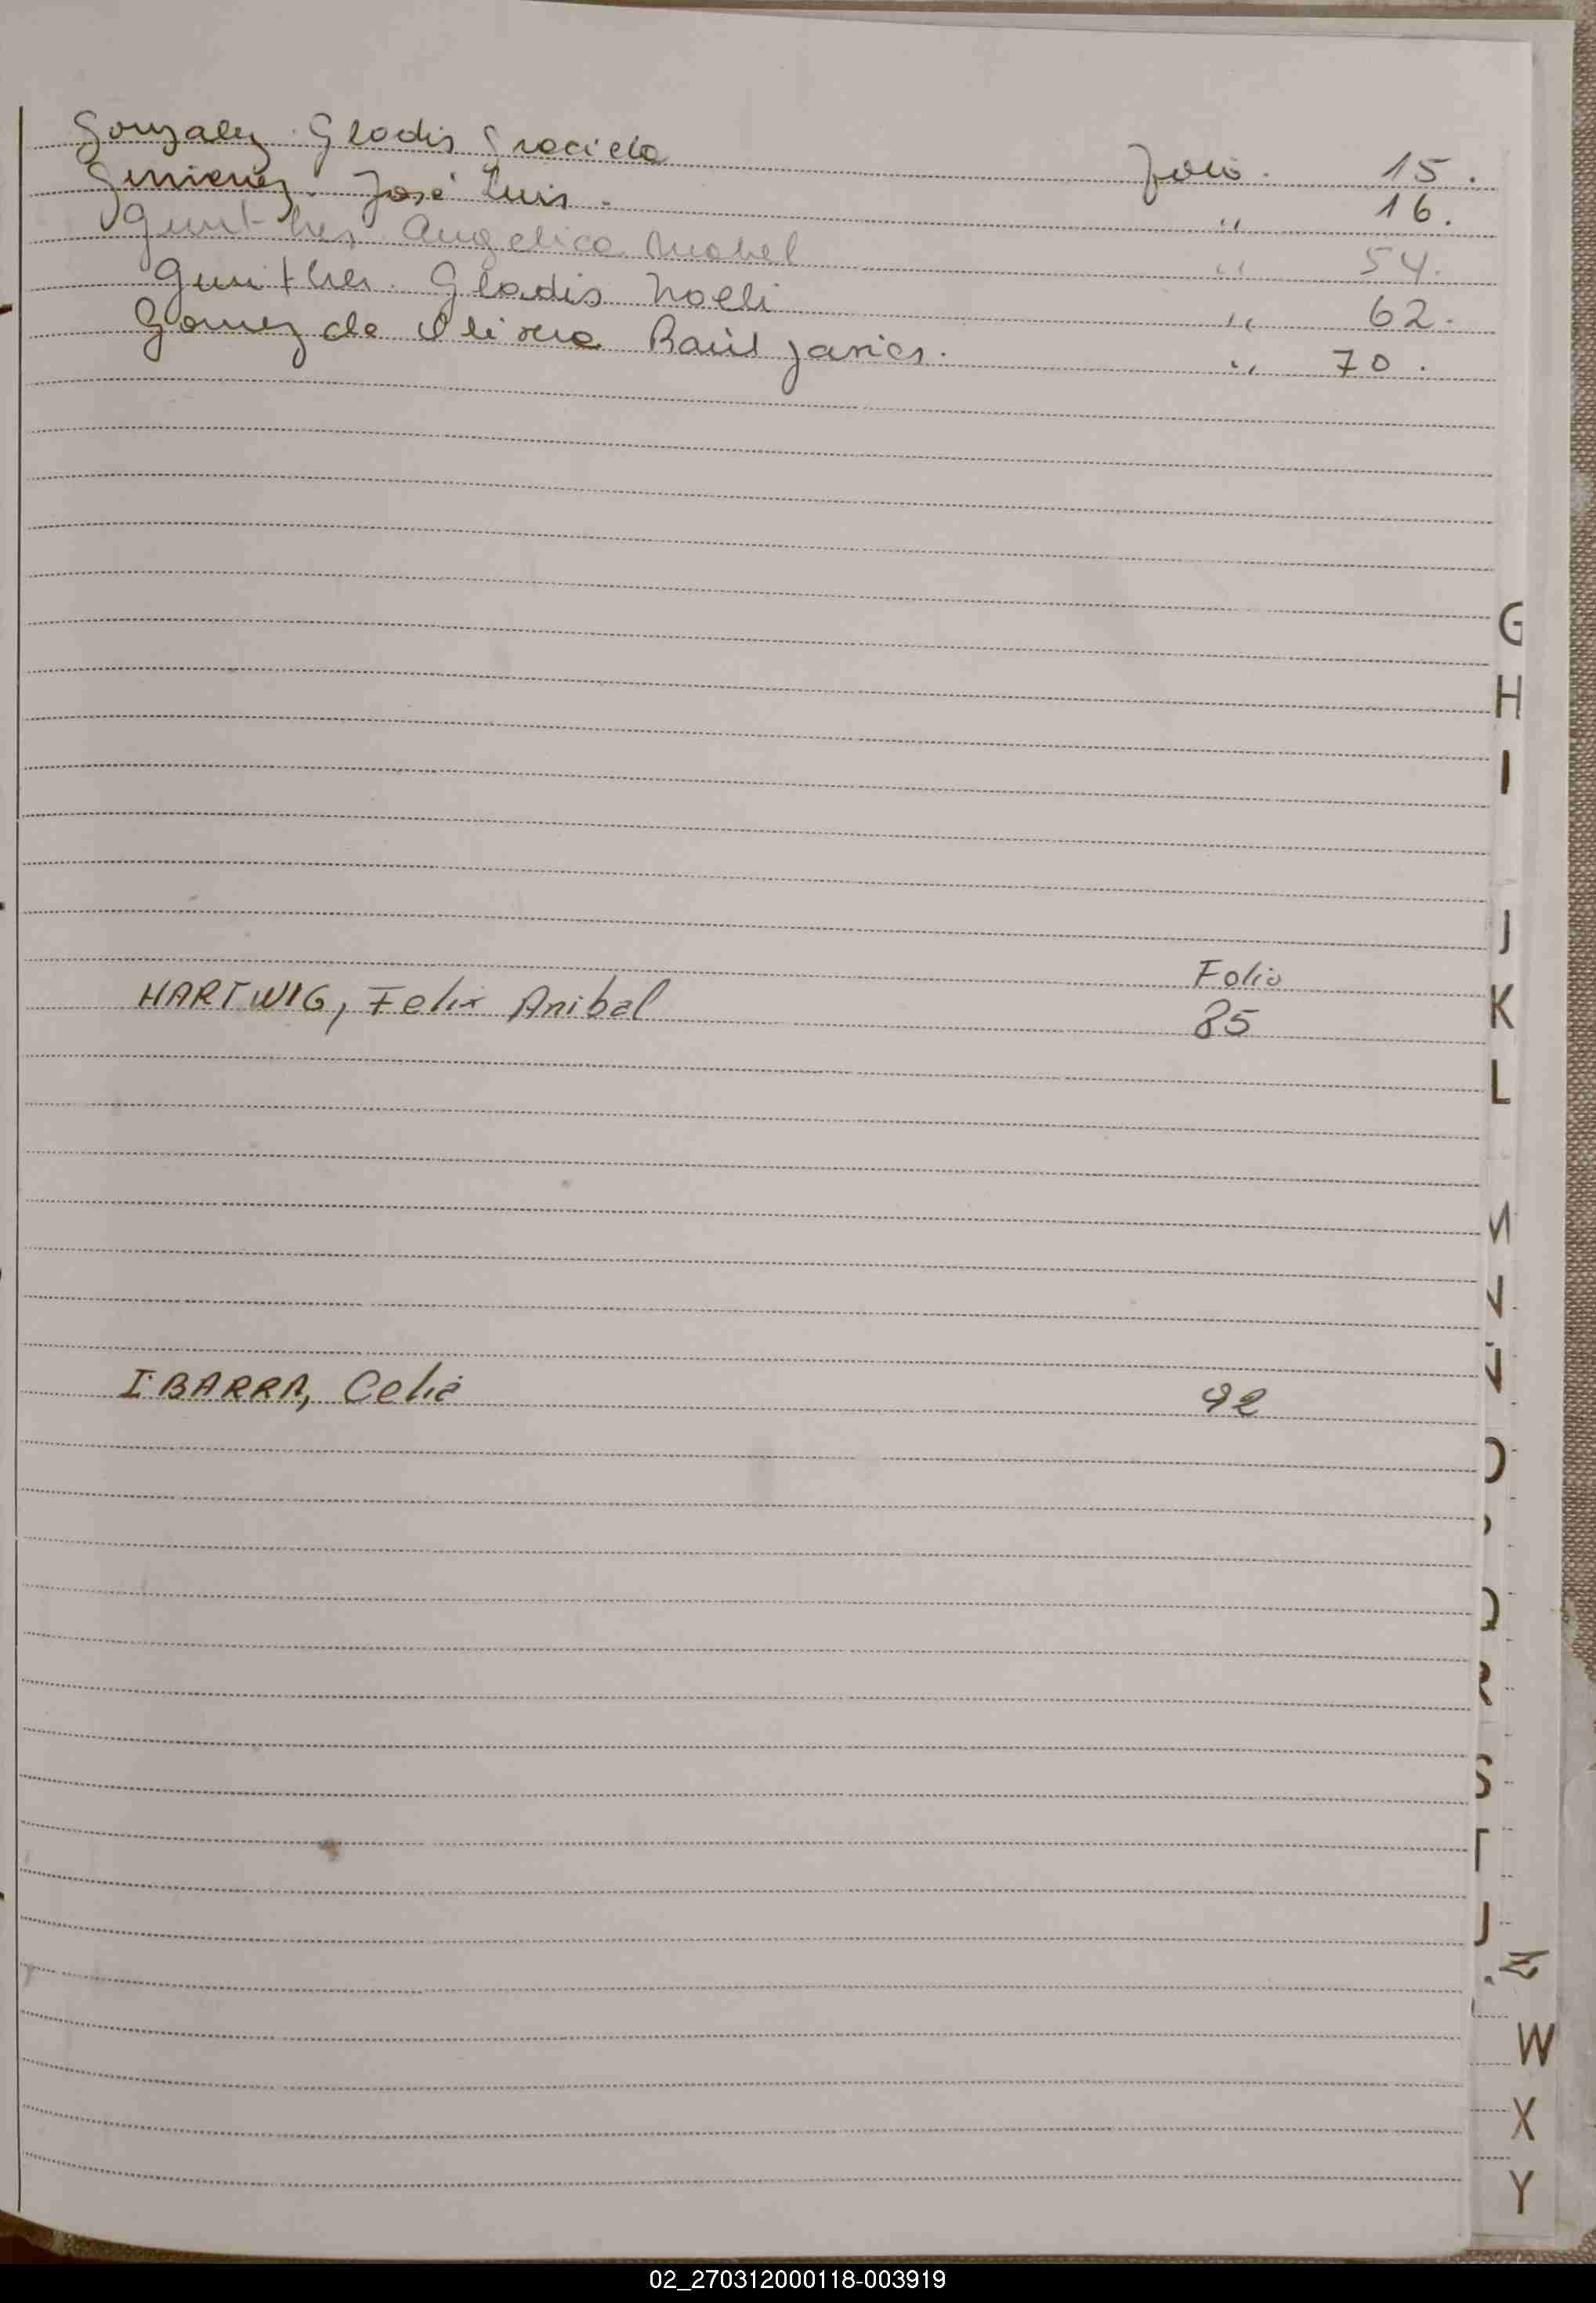 Gonzalez Gladis Graciela Folio. 15.
Gimenez. José Luis. " 16.
Gunther Angelica Mabel " 54.
Gunther. Gladis Noeli " 62.
Gomez de Olivera Raúl Javier. " 70.
G
H
I
J
K
L
Folio
HARTWIG, Felix Anibal 85
IBARRA, Celia 92
Q
R
S
T
Z
W
X
Y
02_270312000118-003919